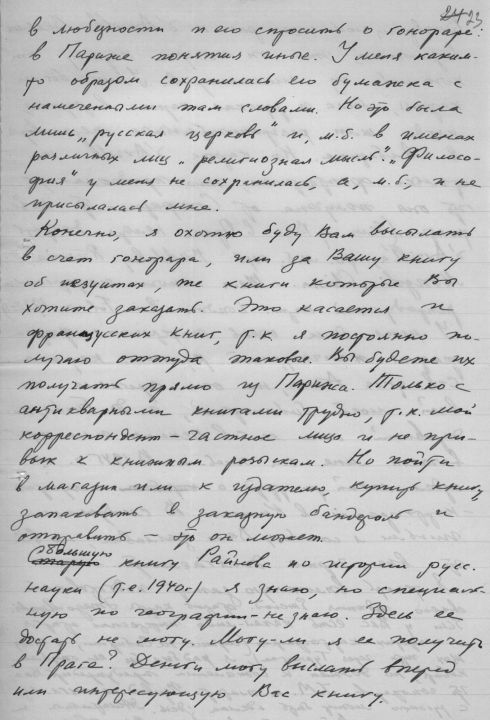 24 23
в любезности и его спросить о гонораре:
в Париже понятия иные. У меня каким-
то образом сохранилась его бумажка с
намеченными там словами. Но это была
лишь „русская церковь" и, м.б. в именах
различных лиц „религиозная мысль". „Филосо-
фия" у меня не сохранилась, а, м.б., и не
присылалась мне.
Конечно, я охотно буду Вам высылать
в счет гонорара, или за Вашу книгу
об иезуитах, те книги которые Вы
хотите заказать. Это касается и
французских книг, т.к я постоянно по-
лучаю оттуда таковые. Вы будете их
получать прямо из Парижа. Только с
антикварными книгами трудно, т.к. мой
корреспондент – частное лицо и не при-
вык к книжным розыскам. Но пойти
в магазин или к издателю, купить книгу,
запаковать в заказную бандероль и
отправить – это он может.
большую
старую книгу Райнова по истории русс.
науки (т.е. 1940г.) я знаю, но специаль-
ную по географии – не знаю. Здесь ее
достать не могу. Могу-ли я ее получить
в Праге? Деньги могу выслать вперед
или интересующую Вас книгу.